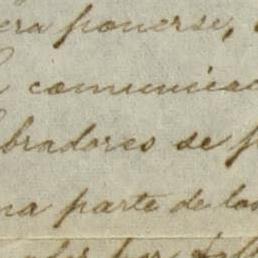 era ponerse,
comunicac
bradores se p
na parte de los
por